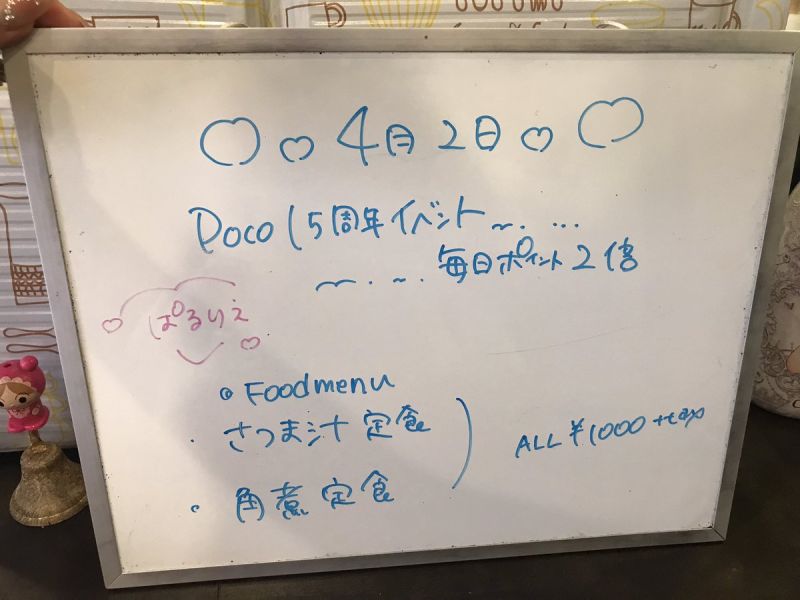 ♡♡4月2日♡♡
Poco 15周年イベント~....
~...毎日ポイント2倍
♡ぱるりえ♡
◎Foodmenu
・さつま汁定食
・角煮定食
ALL ¥1000 +tax